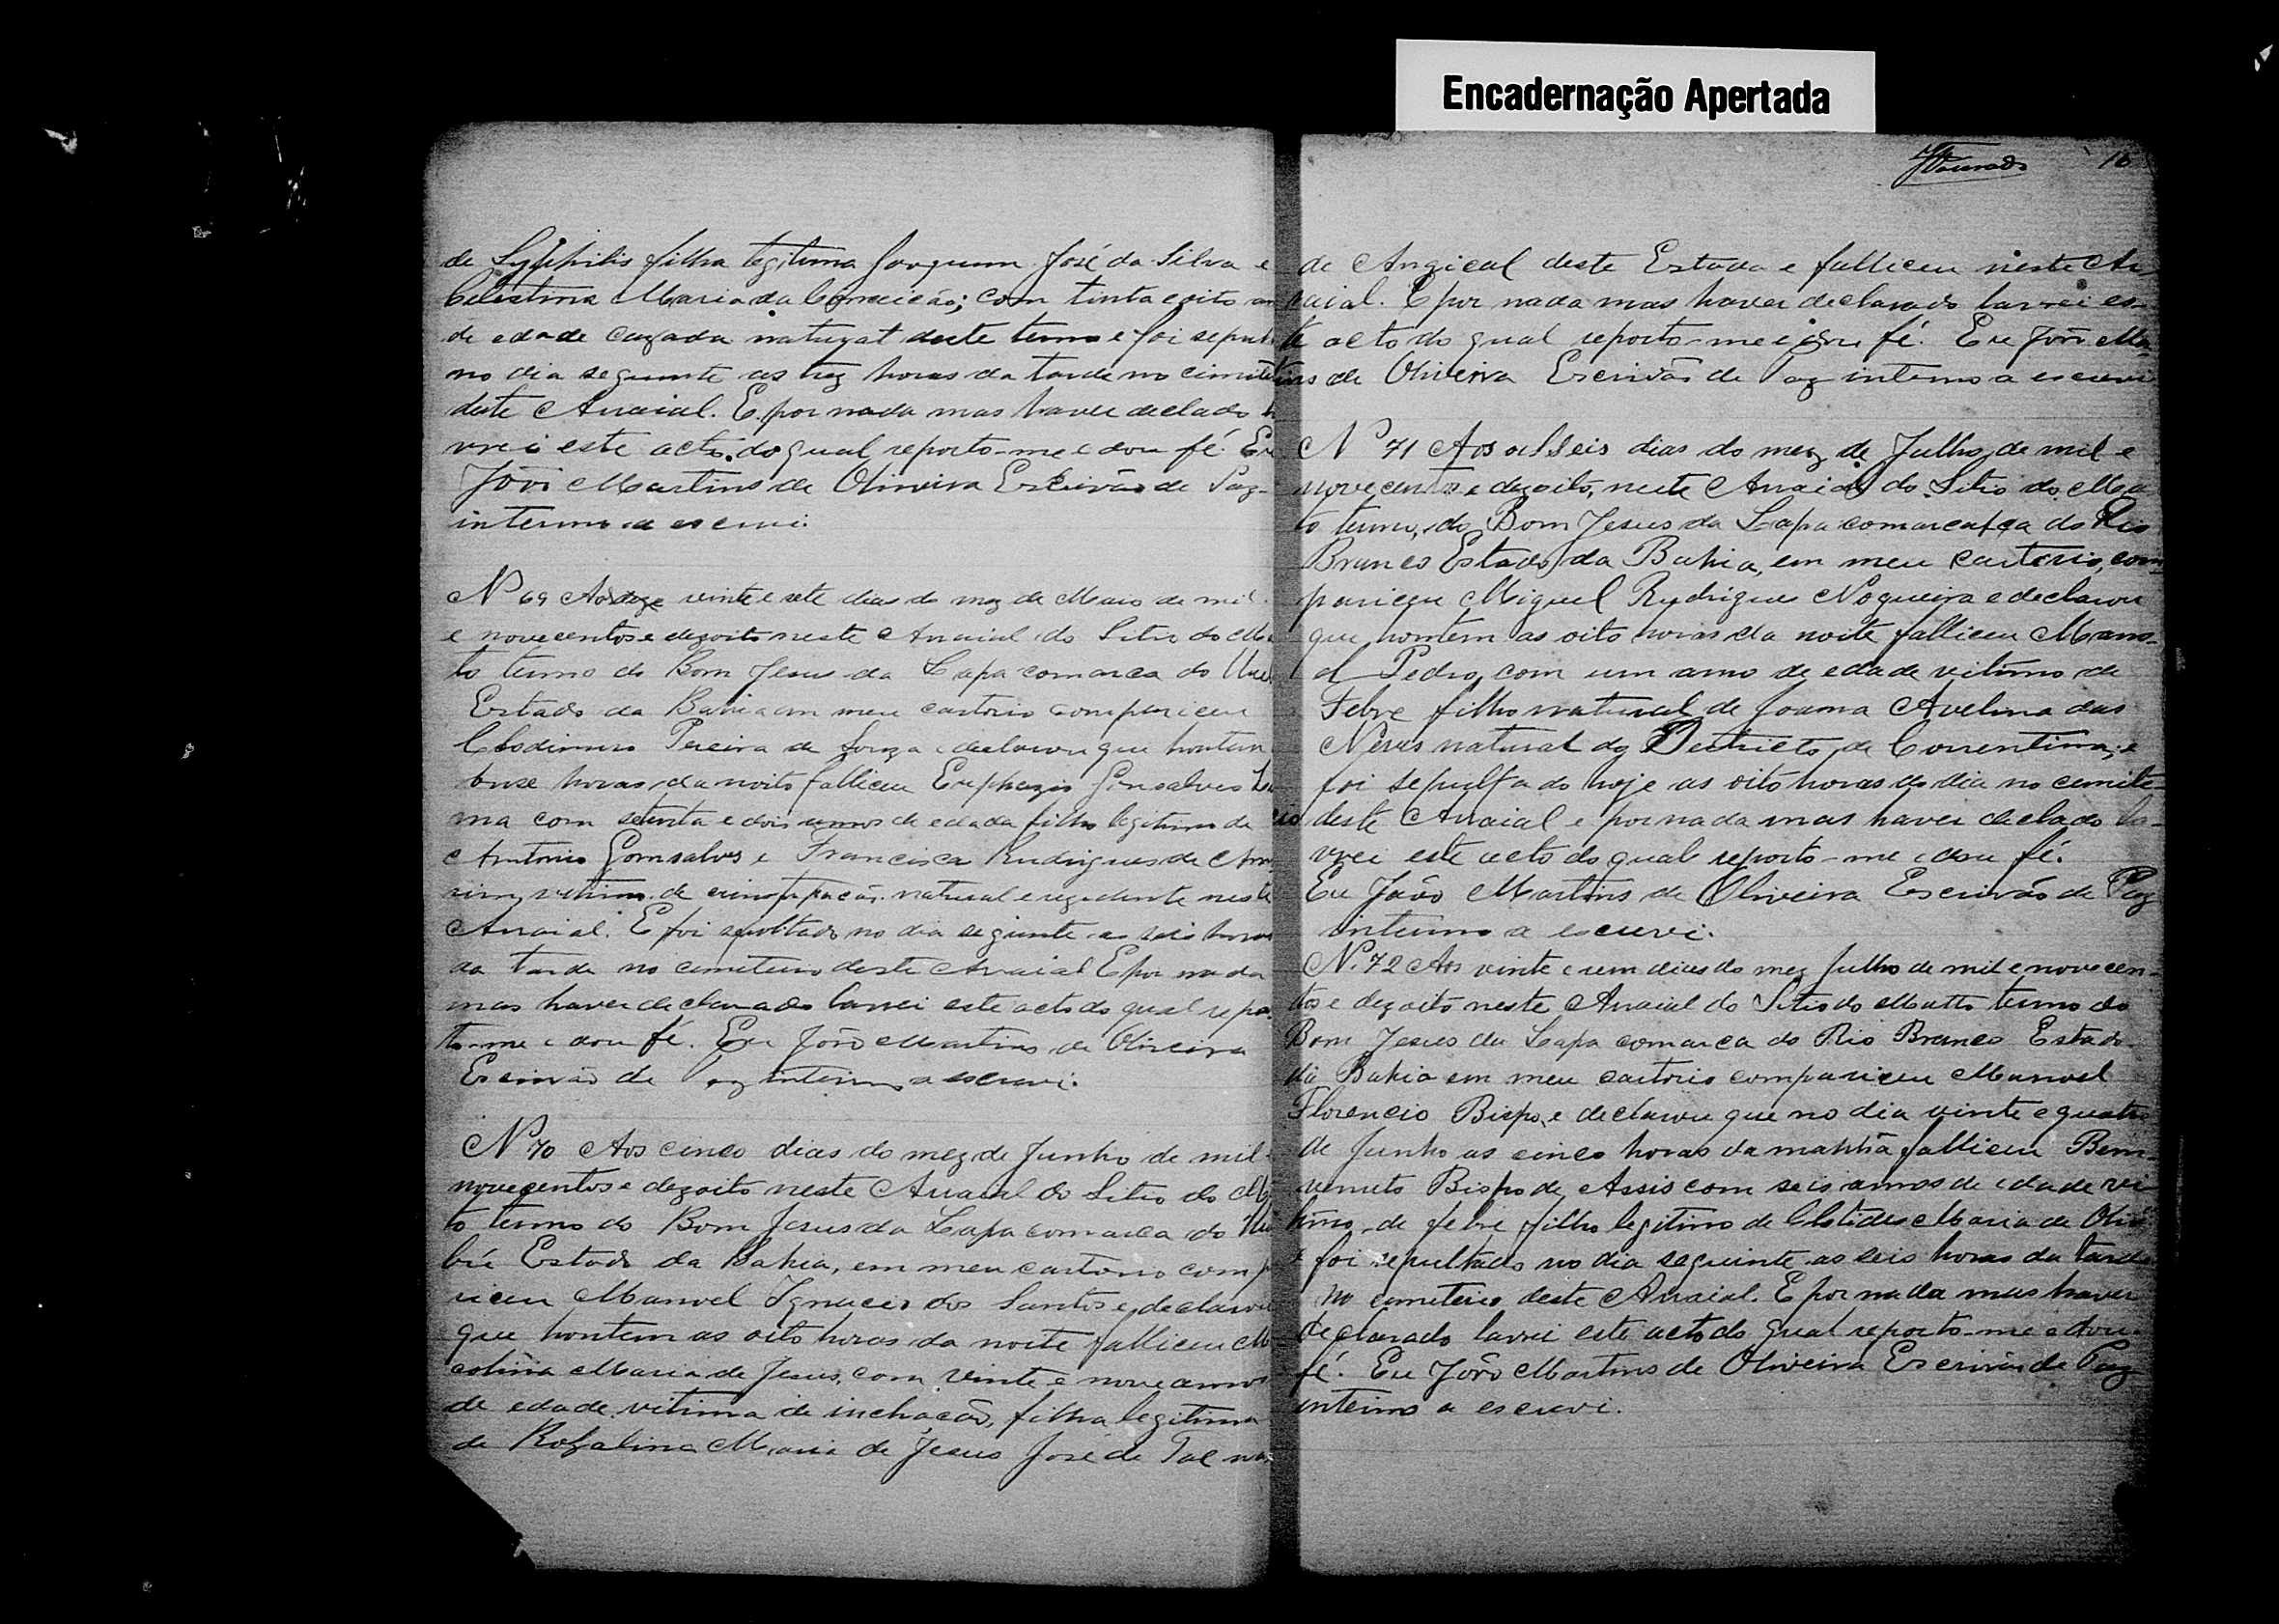 Encadernação Apertada
de Syphilis filha legitima Joaquim José da Silva e
Celestina Maria da Conceição; com tinta e oito an
de edade cazada natural deste termo e foi sepult
no dia seguinte as trez horas da tarde no cimite
deste Arraial. E por nada mas haver declado la
vrei este acto do qual reporto-me e dou fé. Eu
João Martins de Oliveira Escrivão de Paz
interino a escrevi.
Nº 69 Aos vinte e sete dias do mez de Maio de mil
e novecentos e dezoito neste Arraial do Sitio do Ma
to termo do Bom Jesus da Lapa comarca do
Estado da Bahia em meu cartorio compariceu
Clodimiro Pereira de Souza e declarou que hontem
onse horas da noite falliceu Euphazio Gonsalves
ma com setenta e dois annos de edada filho legitimo de
Antonio Gomsalves e Francisca Rudrigues de Am
rim, vitimo de natural e rezedente neste
Arraial. E foi sepultado no dia seguinte as seis horas
da tarde no cemiterio deste Arraial E por nada
mas haver declarado lavrei este acto do qual repor
to-me e dou fé. Eu João Martins de Oliveira
Escrivão de Paz interino a escrevi.
Nº 70 Aos cinco dias do mez de Junho de mil
novecentos e dezoito neste Arraial do Sitio do Ma
to termo do Bom Jesus da Lapa comarca do
Estado da Bahia, em meu cartorio compa
riceu Manoel Ignacio dos Santos e declarou
que hontem as oito horas da noite falliceu M
colina Maria de Jesus, com vinte e nove annos
de edade vitima de inchação, filha legitima
de Rosalina Maria de Jesus José de Tal na
16
de Angical deste Estado e falliceu neste Ar
raial. E por nada mas haver declarado lavrei es-
te acto do qual reporto-me e dou fé. Eu João Mar
tins de Oliveira Escrivão de Paz interino a escrevi
Nº 71 Aos seis dias do mez de Julho de mil e
novecentos e dezoito, neste Arraial do Sitio do Mat
to termo, do Bom Jesus da Lapa comarca do Rio
Branco Estado da Bahia, em meu cartorio, com
pariceu Miguel Rudrigues Nogueira e declarou
que hontem as oito horas da noite falliceu Mano-
el Pedro, com um anno de edade vitimo de
Febre filho natural de Joanna Avelina das
Neves natural do Destricto de Correntina, e
foi sepultado hoje as oito horas do dia no cimite-
rio deste Arraial e por nada mas haver declado la-
vrei este acto do qual reporto-me e dou fé.
Eu João Martins de Oliveira Escrivão de Paz
interino a escrevi.
N. 72 Aos vinte e um dias do mez Julho de mil e novecen-
tos e dezoito neste Arraial do Sitio do Matto termo do
Bom Jesus da Lapa comarca do Rio Branco Estado
da Bahia em meu cartorio compariceu Manoel
Florencio Bispo, e declarou que no dia vinte e quatro
de Junho as cinco horas da manhã falliceu Bem-
venuto Bispo de Assis com seis annos de edade vi-
timo de febre filho legitimo de Clotides Maria de Oliv
e foi sepultado no dia seguinte as seis horas da tarde
no cemiterio deste Arraial. E por nada mas haver
declarado lavrei este acto do qual reporto-me e dou
fé. Eu João Martins de Oliveira Escrivão de Paz
interino a escrevi.